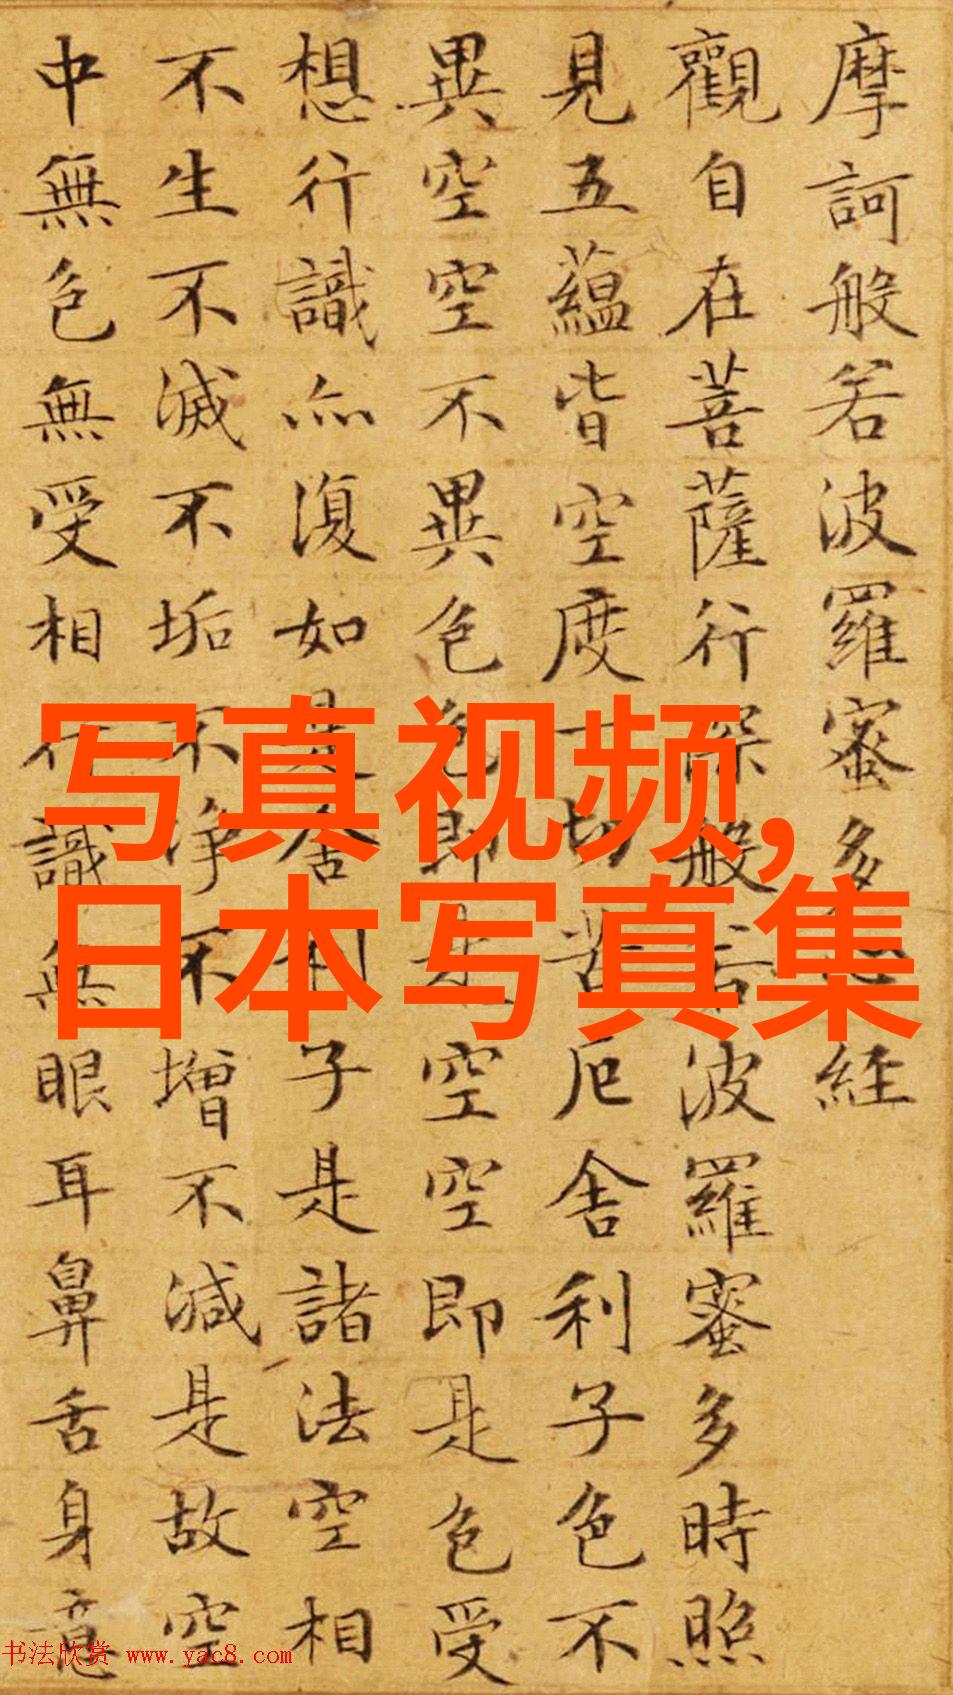 摩訶般若波羅蜜多心經
觀自在菩薩行深般若波羅蜜多時照
見五蘊皆空度一切苦厄舍利子色不
異空空不異色色即是空空即是色受
想行識亦復如是舍利子是諸法空相
不生不滅不垢不淨不增不減是故空
中無色無受相行識無眼耳鼻舌身意
写真视频,
日本写真集
书法欣赏 www.yac8.com